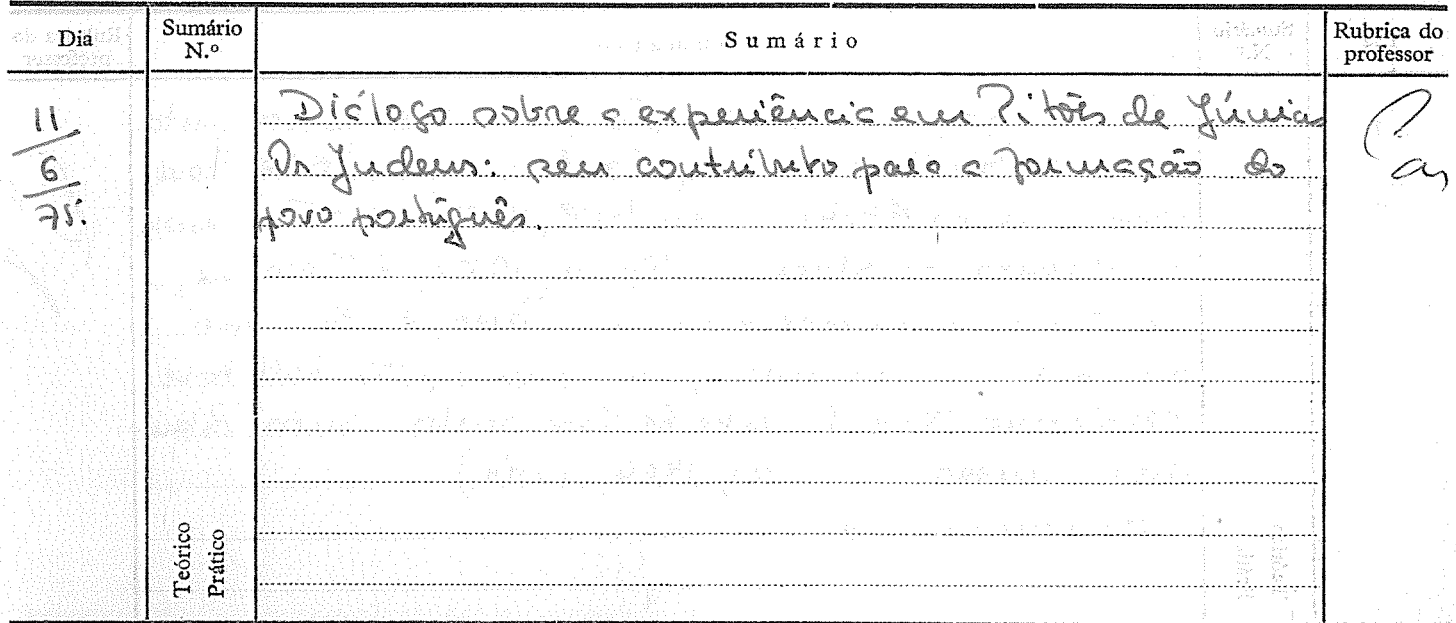 Dia
Sumário N.º
Sumário
Rubrica do professor
11
6
75.
Diálogo sobre a experiência em Pitões de Júnias
Os Judeus: seu contributo para a formação do
povo português.
Teórico
Prático